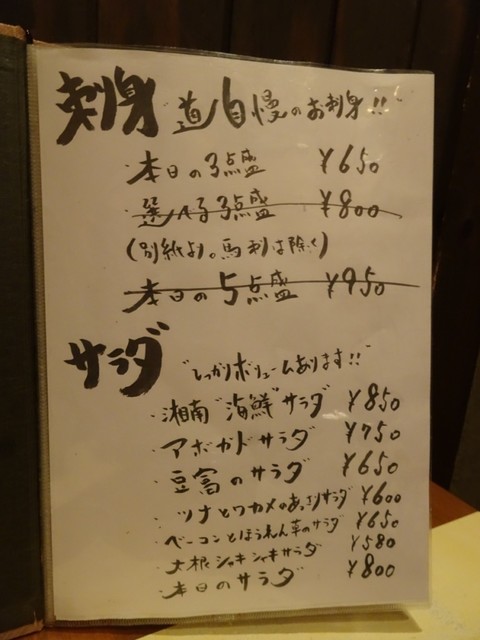 刺身 道自慢のお刺身!!
・本日の3点盛 ¥650
・選べる3点盛 ¥800
(別紙より。馬刺は除く)
・本日の5点盛 ¥950
サラダ
"しっかりボリュームあります!!"
・湘南"海鮮"サラダ ¥850
・アボカドサラダ ¥750
・豆富のサラダ ¥650
・ツナとワカメのあっさりサラダ ¥600
・ベーコンとほうれん草のサラダ ¥650
・大根シャキシャキサラダ ¥580
・本日のサラダ ¥800